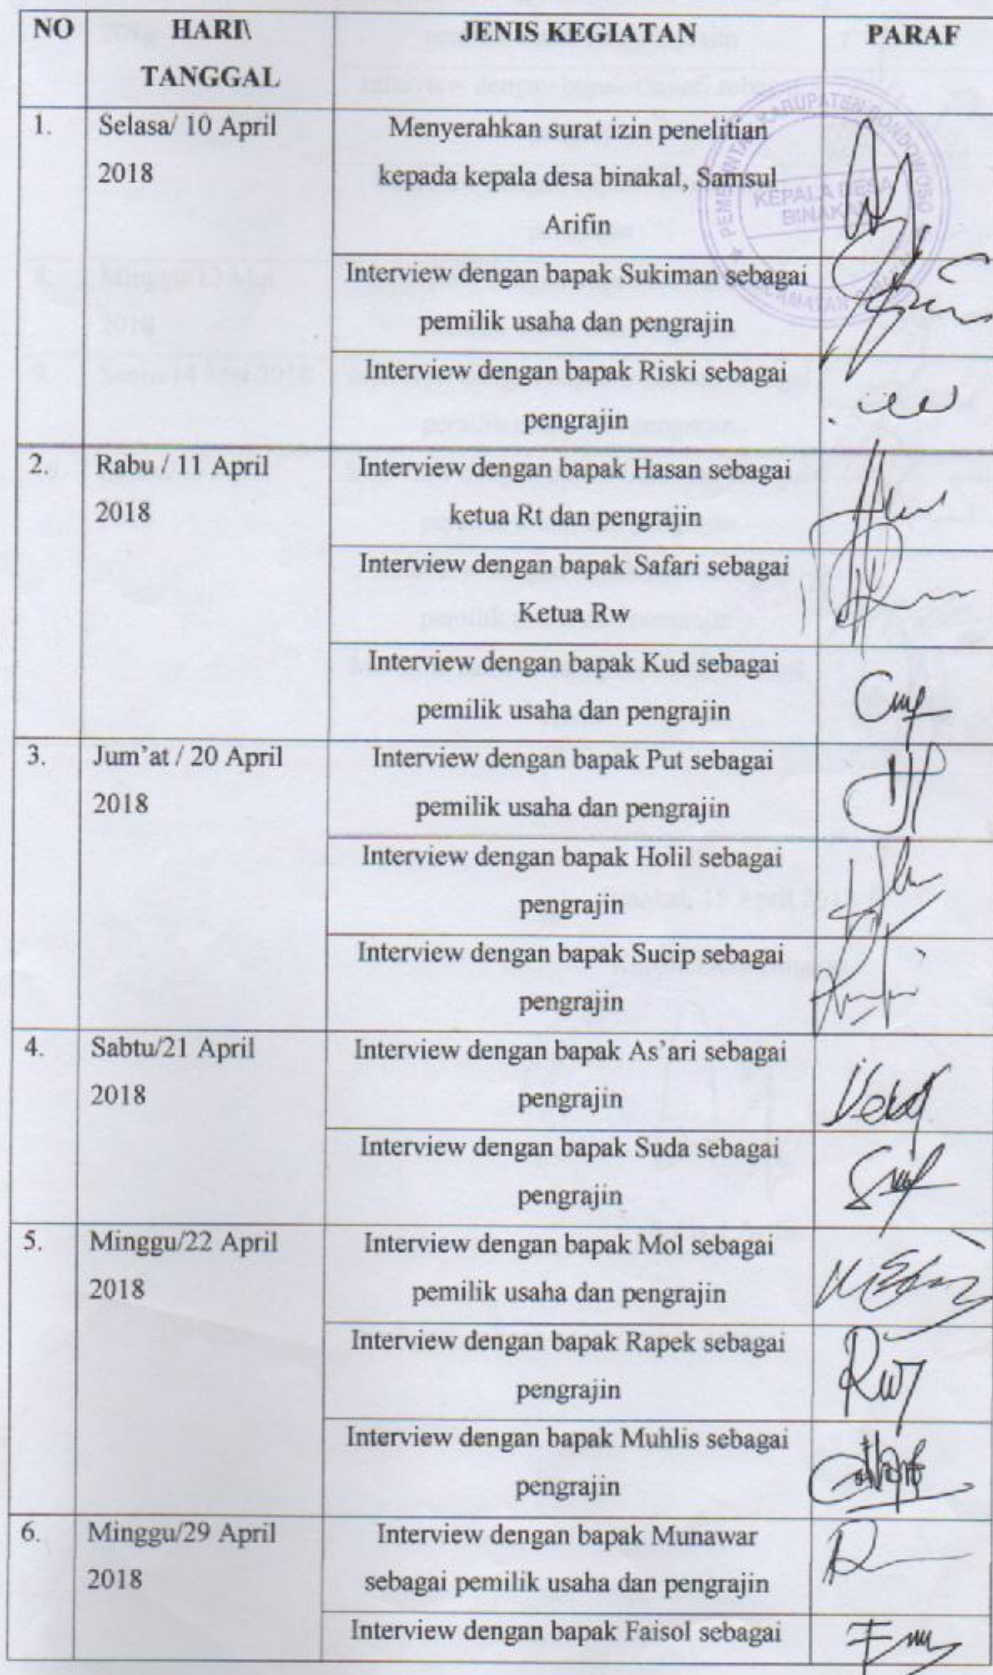 NO HARI\ JENIS KEGIATAN PARAF
TANGGAL
1. Selasa/ 10 April Menyerahkan surat izin penelitian
2018 kepada kepala desa binakal, Samsul
Arifin
PEMERINTAH KABUPATEN BONDOWOSO
KEPALA DESA
BINAKAL
KECAMATAN
Interview dengan bapak Sukiman sebagai
pemilik usaha dan pengrajin
Interview dengan bapak Riski sebagai
pengrajin
2. Rabu / 11 April Interview dengan bapak Hasan sebagai
2018 ketua Rt dan pengrajin
Interview dengan bapak Safari sebagai
Ketua Rw
Interview dengan bapak Kud sebagai
pemilik usaha dan pengrajin
3. Jum'at / 20 April Interview dengan bapak Put sebagai
2018 pemilik usaha dan pengrajin
Interview dengan bapak Holil sebagai
pengrajin
Interview dengan bapak Sucip sebagai
pengrajin
4. Sabtu/21 April Interview dengan bapak As'ari sebagai
2018 pengrajin
Interview dengan bapak Suda sebagai
pengrajin
5. Minggu/22 April Interview dengan bapak Mol sebagai
2018 pemilik usaha dan pengrajin
Interview dengan bapak Rapek sebagai
pengrajin
Interview dengan bapak Muhlis sebagai
pengrajin
6. Minggu/29 April Interview dengan bapak Munawar
2018 sebagai pemilik usaha dan pengrajin
Interview dengan bapak Faisol sebagai